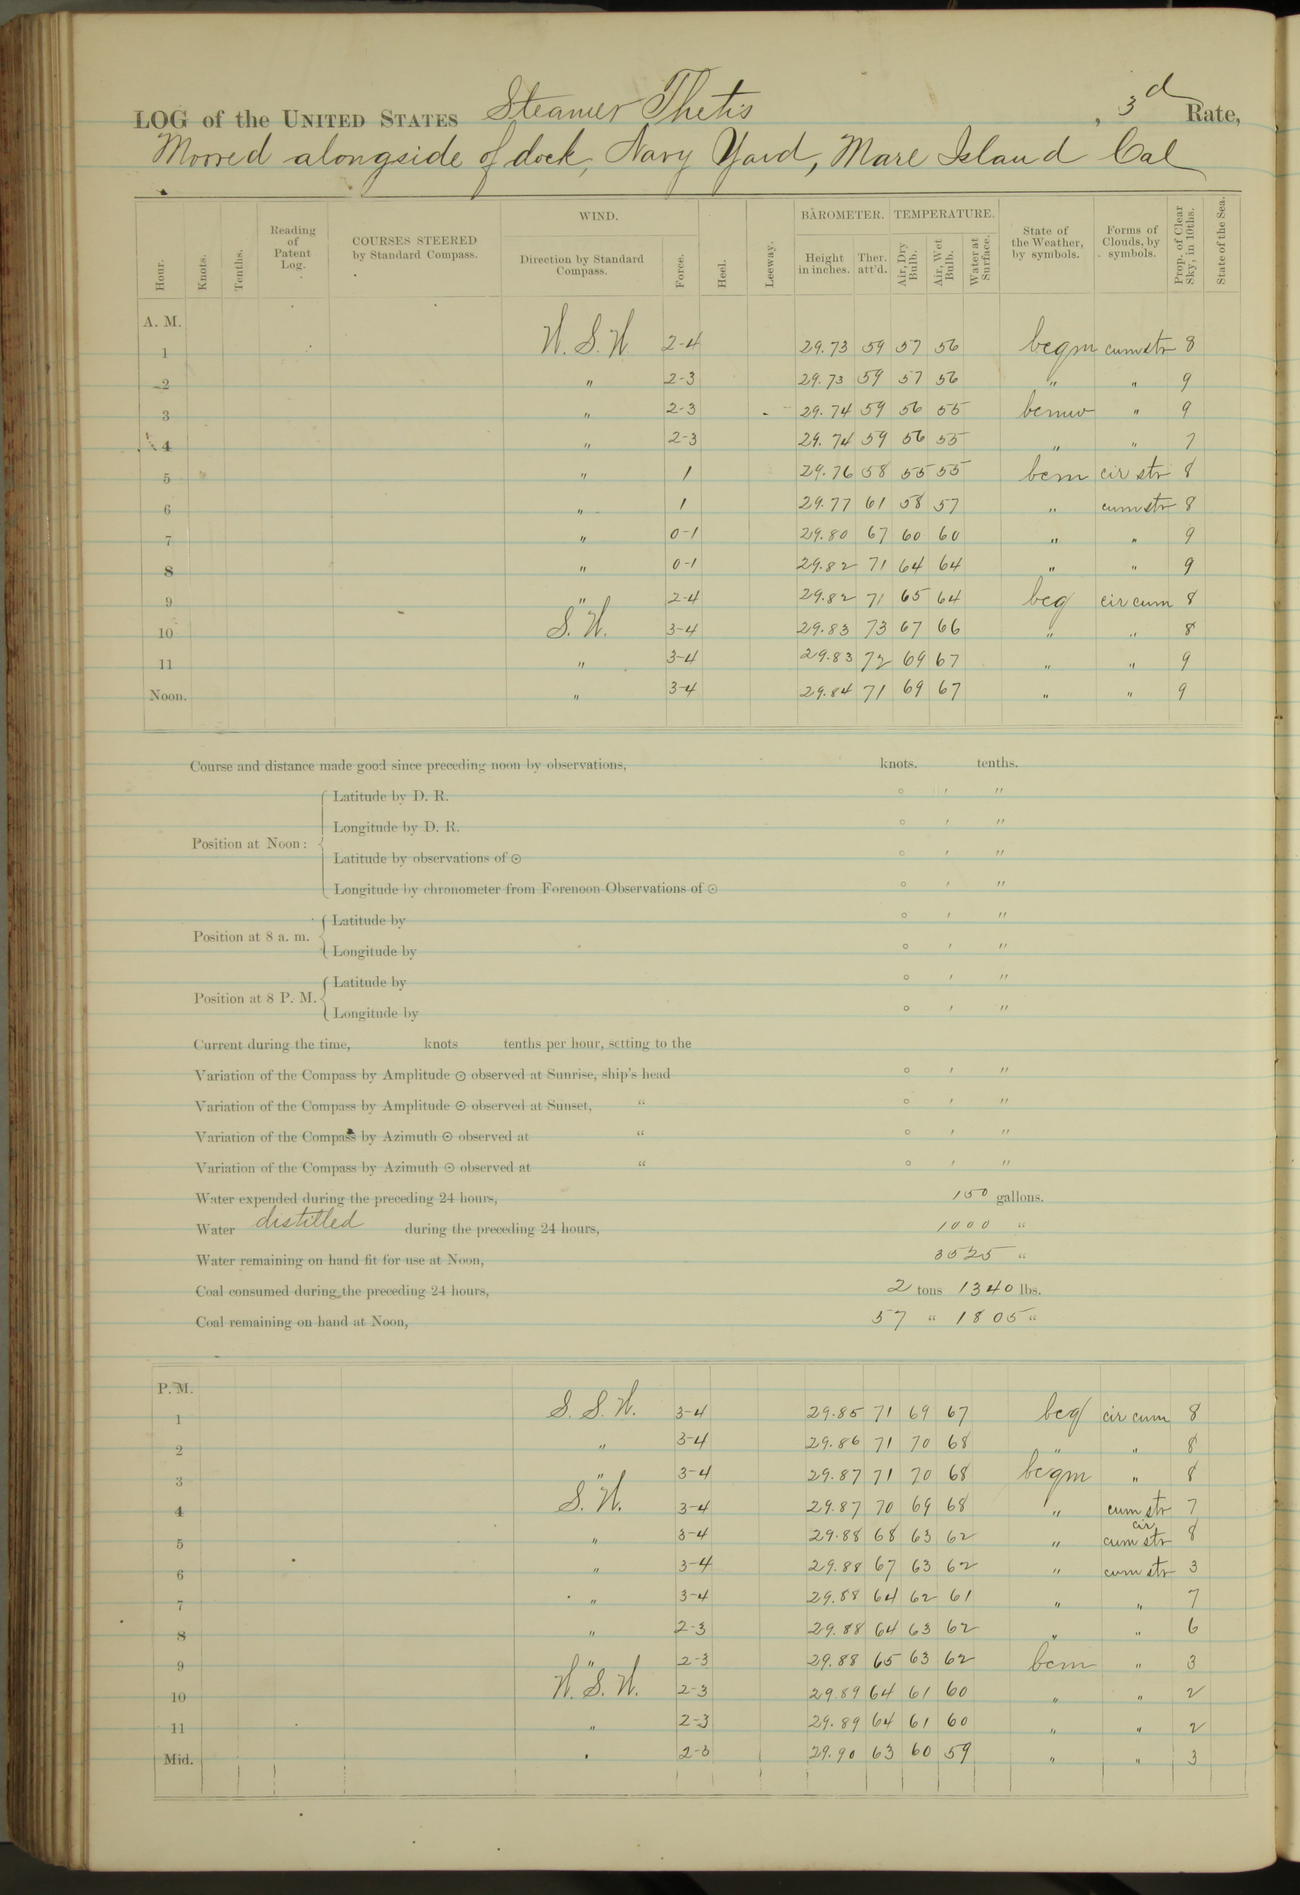 LOG of the UNITED STATES Steamer Thetis, 3d Rate,
Moored alongside of dock, Navy Yard, Mare Island Cal
Hour. Knots. Tenths. Reading of Patent Log. COURSES STEERED by Standard Compass. WIND. Direction by Standard Compass. Force. Heel. Leeway. BAROMETER. Height in inches. Ther. att'd. TEMPERATURE. Air, Dry Bulb. Air, Wet Bulb. Water at Surface. State of the Weather, by symbols. Forms of Clouds, by symbols. Prop. of Clear Sky, in 10ths. State of the Sea.
A. M.
1 W. S. W. 2-4 29.73 59 57 56 bcqm cum str 8
2 " 2-3 29.73 59 57 56 " " 9
3 " 2-3 29.74 59 56 55 bcmw " 9
4 " 2-3 29.74 59 56 55 " " 7
5 " 1 29.76 58 55 55 bcm cir str 8
6 " 1 29.77 61 58 57 " cum str 8
7 " 0-1 29.80 67 60 60 " " 9
8 " 0-1 29.82 71 64 64 " " 9
9 " 2-4 29.82 71 65 64 bcq cir cum 8
10 S. W. 3-4 29.83 73 67 66 " " 8
11 " 3-4 29.83 72 69 67 " " 9
Noon. " 3-4 29.84 71 69 67 " " 9
Course and distance made good since preceding noon by observations, knots. tenths.
Position at Noon:
Latitude by D. R. ° ' "
Longitude by D. R. ° ' "
Latitude by observations of ☉ ° ' "
Longitude by chronometer from Forenoon Observations of ☉ ° ' "
Position at 8 a. m.
Latitude by ° ' "
Longitude by ° ' "
Position at 8 P. M.
Latitude by ° ' "
Longitude by ° ' "
Current during the time, knots tenths per hour, setting to the
Variation of the Compass by Amplitude ☉ observed at Sunrise, ship's head ° ' "
Variation of the Compass by Amplitude ☉ observed at Sunset, " ° ' "
Variation of the Compass by Azimuth ☉ observed at " ° ' "
Variation of the Compass by Azimuth ☉ observed at " ° ' "
Water expended during the preceding 24 hours, 150 gallons.
Water distilled during the preceding 24 hours, 1000 "
Water remaining on hand fit for use at Noon, 3525 "
Coal consumed during the preceding 24 hours, 2 tons 1340 lbs.
Coal remaining on hand at Noon, 57 " 1805 "
P. M.
1 S. S. W. 3-4 29.85 71 69 67 bcq cir cum 8
2 " 3-4 29.86 71 70 68 " " 8
3 " 3-4 29.87 71 70 68 bcqm " 8
4 S. W. 3-4 29.87 70 69 68 " cum str 7
5 " 3-4 29.88 68 63 62 " cir cum str 8
6 " 3-4 29.88 67 63 62 " cum str 3
7 " 3-4 29.88 64 62 61 " " 7
8 " 2-3 29.88 64 63 62 " " 6
9 " 2-3 29.88 65 63 62 bcm " 3
10 W. S. W. 2-3 29.89 64 61 60 " " 2
11 " 2-3 29.89 64 61 60 " " 2
Mid. " 2-3 29.90 63 60 59 " " 3